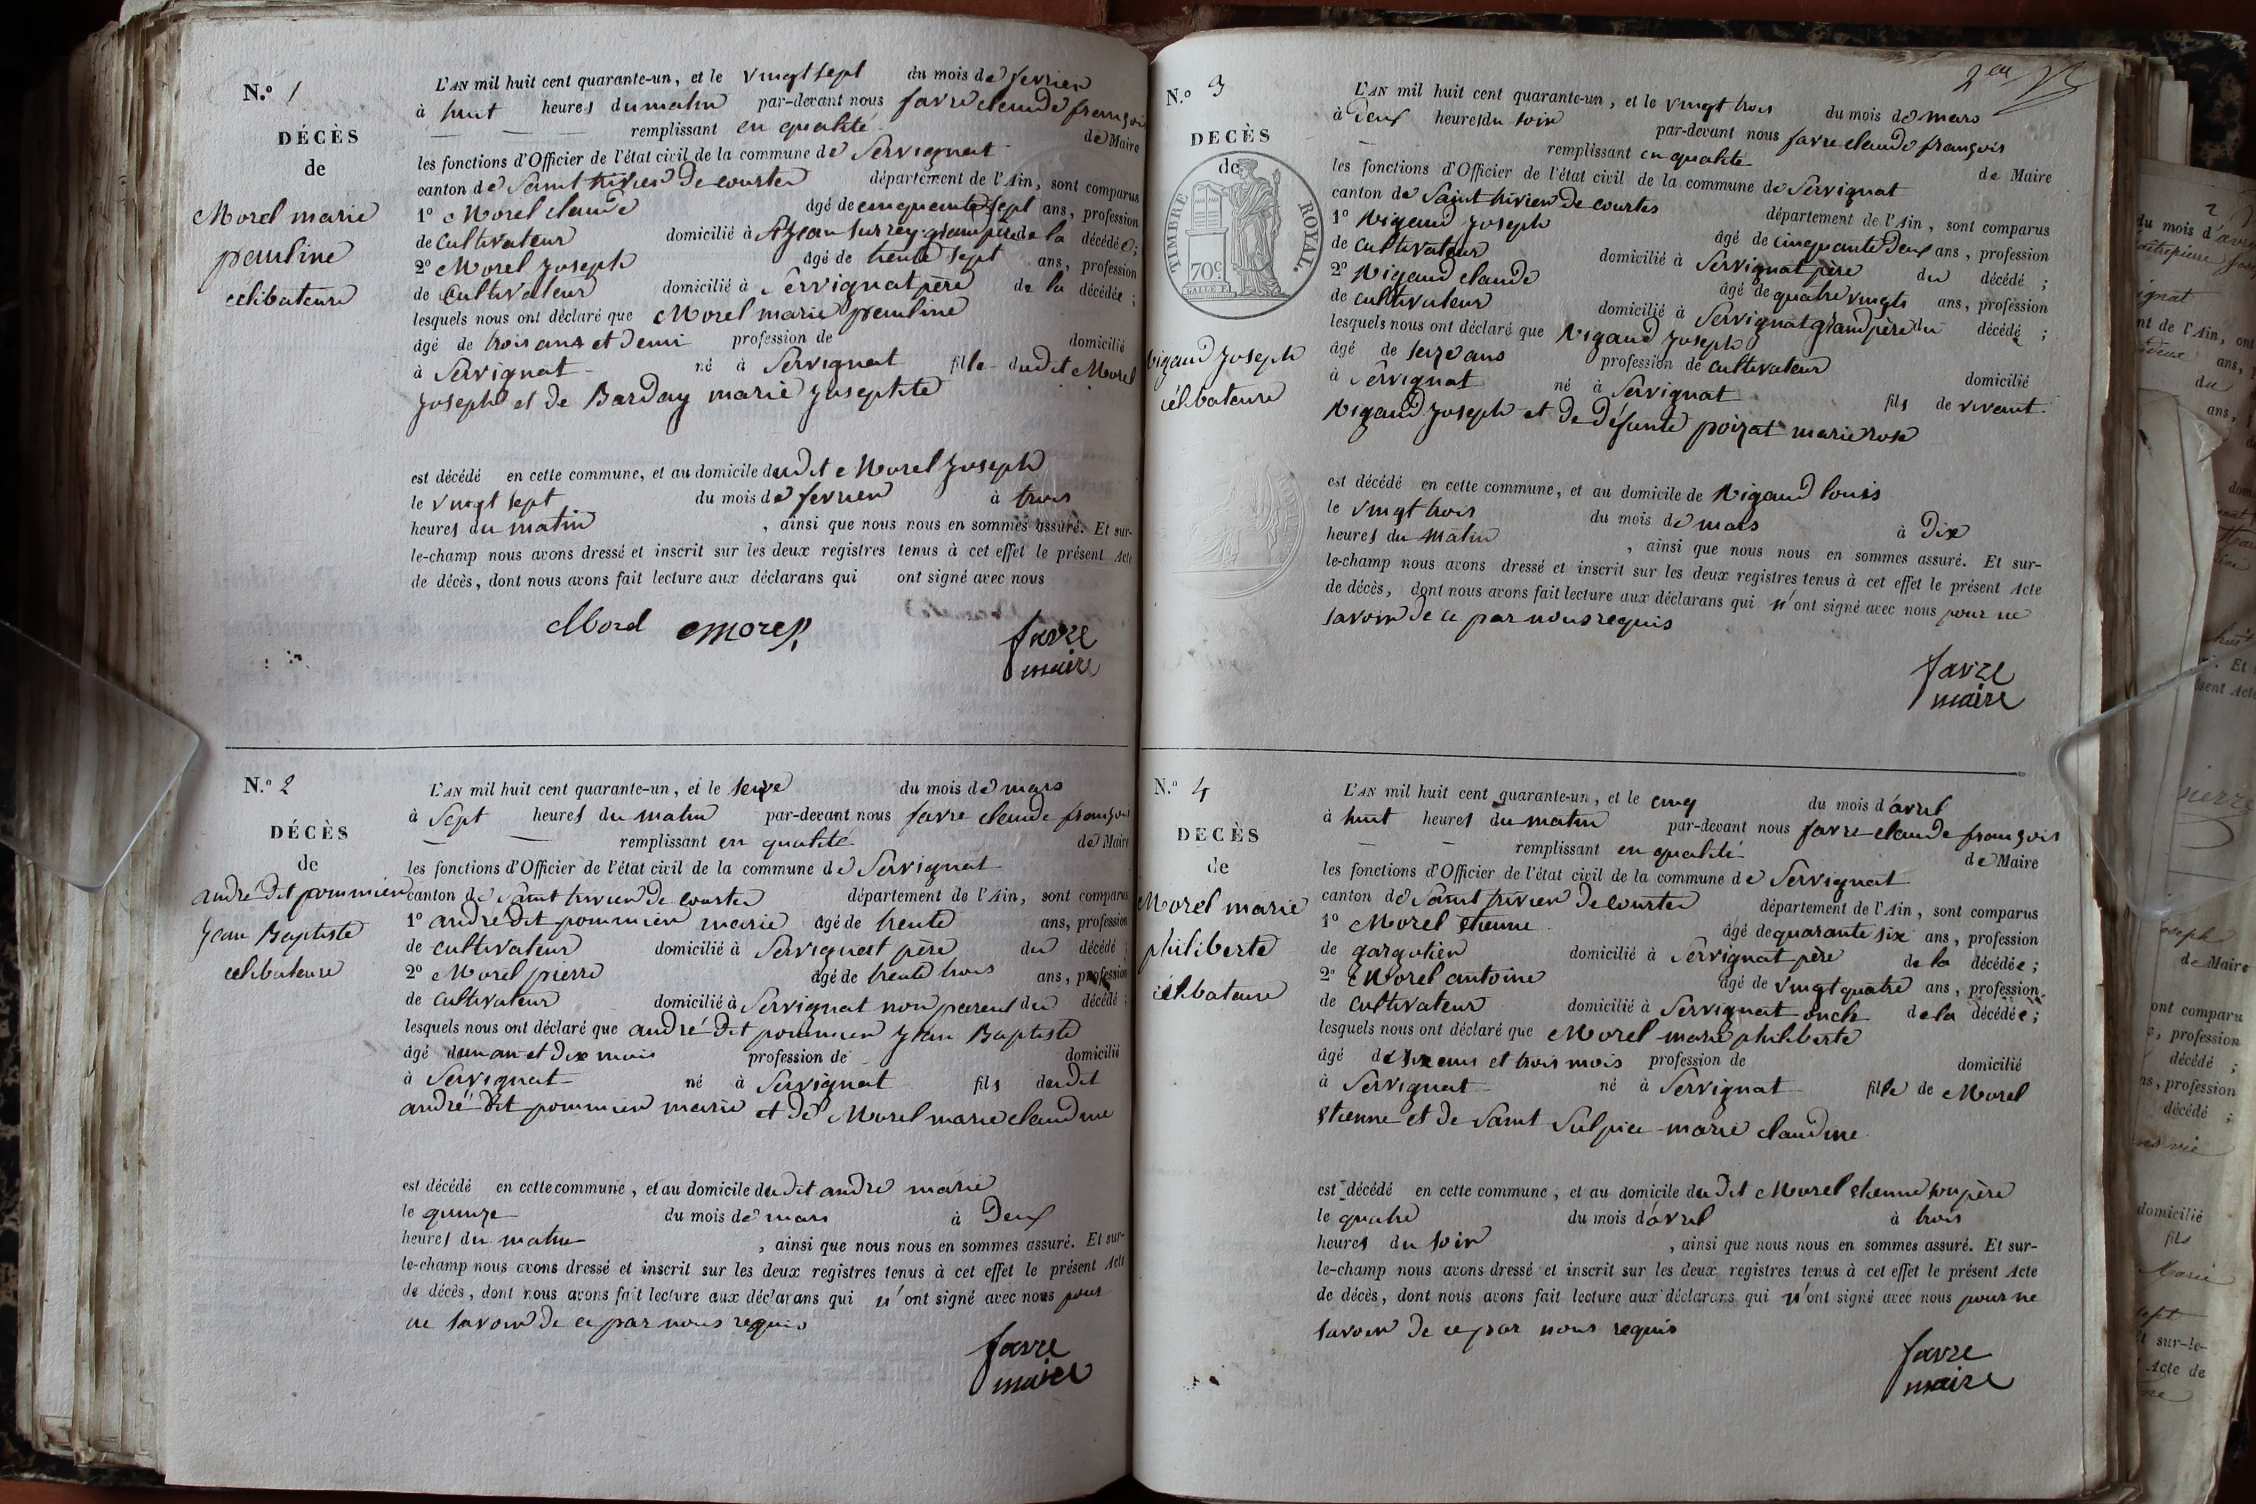 N.º 1
DÉCÈS
de
Morel marie
pauline
célibataire
L'AN mil huit cent quarante-un, et le vingt sept du mois de fevrier
à huit heures du matin par-devant nous favre claude françois
remplissant en qualité de Maire
les fonctions d'Officier de l'état civil de la commune de Servignat
canton de Saint trivier de courtes département de l'Ain, sont comparus
1º Morel claude âgé de cinquante sept ans, profession
de cultivateur domicilié à St jean sur rey grand père de la décédée;
2º Morel Joseph âgé de trente sept ans, profession
de cultivateur domicilié à Servignat père de la décédée;
lesquels nous ont déclaré que Morel marie pauline
âgé de trois ans et demi profession de domicilié
à Servignat né à Servignat fille dudit Morel
Joseph et de Barday marie Josephte
est décédé en cette commune, et au domicile dudit Morel Joseph
le vingt sept du mois de fevrier à trois
heures du matin, ainsi que nous nous en sommes assuré. Et sur-
le-champ nous avons dressé et inscrit sur les deux registres tenus à cet effet le présent Acte
de décès, dont nous avons fait lecture aux déclarans qui ont signé avec nous
Morel Morel favre
maire
N.º 2
DÉCÈS
de
andré dit pommier
Jean Baptiste
célibataire
L'AN mil huit cent quarante-un, et le seize du mois de mars
à Sept heures du matin par-devant nous favre claude françois
remplissant en qualité de Maire
les fonctions d'Officier de l'état civil de la commune de Servignat
canton de Saint trivier de courtes département de l'Ain, sont comparus
1º andré dit pommier marie âgé de trente ans, profession
de cultivateur domicilié à Servignat père du décédé;
2º Morel pierre âgé de trente trois ans, profession
de cultivateur domicilié à Servignat non parent du décédé;
lesquels nous ont déclaré que andré dit pommier Jean Baptiste
âgé d'un an et dix mois profession de domicilié
à Servignat né à Servignat fils dudit
andré dit pommier marie et de Morel marie claudine
est décédé en cette commune, et au domicile dudit andré marie
le quinze du mois de mars à Deux
heures du matin, ainsi que nous nous en sommes assuré. Et sur-
le-champ nous avons dressé et inscrit sur les deux registres tenus à cet effet le présent Acte
de décès, dont nous avons fait lecture aux déclarans qui n'ont signé avec nous pour
ne savoir de ce par nous requis
favre
maire
N.º 3
DECÈS
de
TIMBRE ROYAL.
70 c.
Nigaud Joseph
célibataire
L'AN mil huit cent quarante-un, et le vingt trois du mois de mars
à Deux heures du soir par-devant nous favre claude françois
remplissant en qualité de Maire
les fonctions d'Officier de l'état civil de la commune de Servignat
canton de Saint trivier de courtes département de l'Ain, sont comparus
1º Nigaud Joseph âgé de cinquante Deux ans, profession
de cultivateur domicilié à Servignat père du décédé;
2º Nigaud claude âgé de quatre vingts ans, profession
de cultivateur domicilié à Servignat grand père du décédé;
lesquels nous ont déclaré que Nigaud Joseph
âgé de seize ans profession de cultivateur domicilié
à Servignat né à Servignat fils de vivant
Nigaud Joseph et de Défunte poizat marie rose
est décédé en cette commune, et au domicile de Nigaud louis
le vingt trois du mois de mars à Dix
heures du matin, ainsi que nous nous en sommes assuré. Et sur-
le-champ nous avons dressé et inscrit sur les deux registres tenus à cet effet le présent Acte
de décès, dont nous avons fait lecture aux déclarans qui n'ont signé avec nous pour ne
savoir de ce par nous requis
favre
maire
N.º 4
DECÈS
de
Morel marie
philiberte
célibataire
L'AN mil huit cent quarante-un, et le cinq du mois d'avril
à huit heures du matin par-devant nous favre claude françois
remplissant en qualité de Maire
les fonctions d'Officier de l'état civil de la commune de Servignat
canton de Saint trivier de courtes département de l'Ain, sont comparus
1º Morel etienne âgé de quarante six ans, profession
de gargotier domicilié à Servignat père de la décédée;
2º Morel antoine âgé de vingt quatre ans, profession
de cultivateur domicilié à Servignat oncle de la décédée;
lesquels nous ont déclaré que Morel marie philiberte
âgé de six ans et trois mois profession de domicilié
à Servignat né à Servignat fille de Morel
etienne et de Saint Sulpice marie claudine
est décédé en cette commune, et au domicile dudit Morel etienne son père
le quatre du mois d'avril à trois
heures du soir, ainsi que nous nous en sommes assuré. Et sur-
le-champ nous avons dressé et inscrit sur les deux registres tenus à cet effet le présent Acte
de décès, dont nous avons fait lecture aux déclarans qui n'ont signé avec nous pour ne
savoir de ce par nous requis
favre
maire